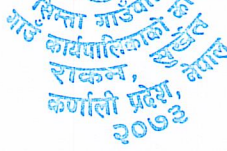 सिम्ता गाउँ
गाउँ कार्यपालिकाको
राकम, सुर्खेत
कर्णाली प्रदेश, नेपाल
२०७३